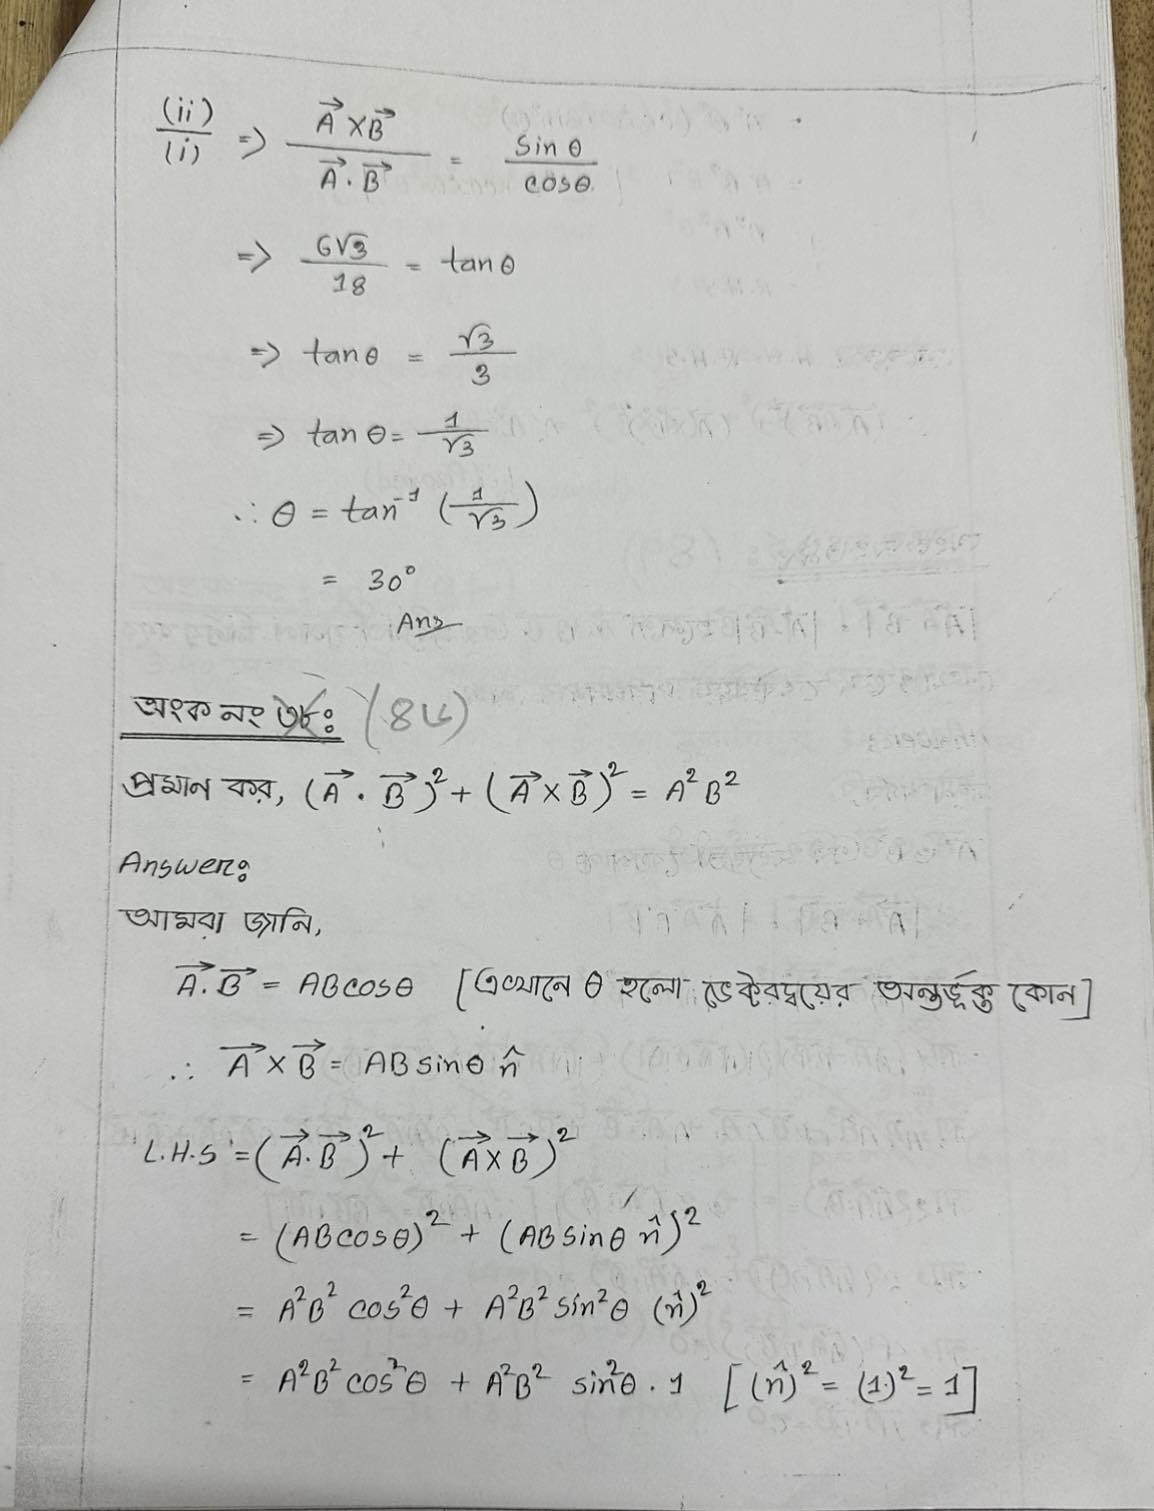 (ii)/(i) => (A⃗ × B⃗)/(A⃗ . B⃗) = sin θ/cos θ
=> 6√3/18 = tan θ
=> tan θ = √3/3
=> tan θ = 1/√3
∴ θ = tan⁻¹ (1/√3)
= 30°
Ans
অংক নং ৩৮ঃ (৪৬)
প্রমান কর, (A⃗ . B⃗)² + (A⃗ × B⃗)² = A² B²
Answerঃ
আমরা জানি,
A⃗ . B⃗ = AB cos θ [এখানে θ হলো ভেক্টরদ্বয়ের অন্তর্ভূক্ত কোন]
∴ A⃗ × B⃗ = AB sin θ n̂
L.H.S = (A⃗ . B⃗)² + (A⃗ × B⃗)²
= (AB cos θ)² + (AB sin θ n̂)²
= A²B² cos²θ + A²B² sin²θ (n̂)²
= A²B² cos²θ + A²B² sin²θ . 1 [(n̂)² = (1)² = 1]